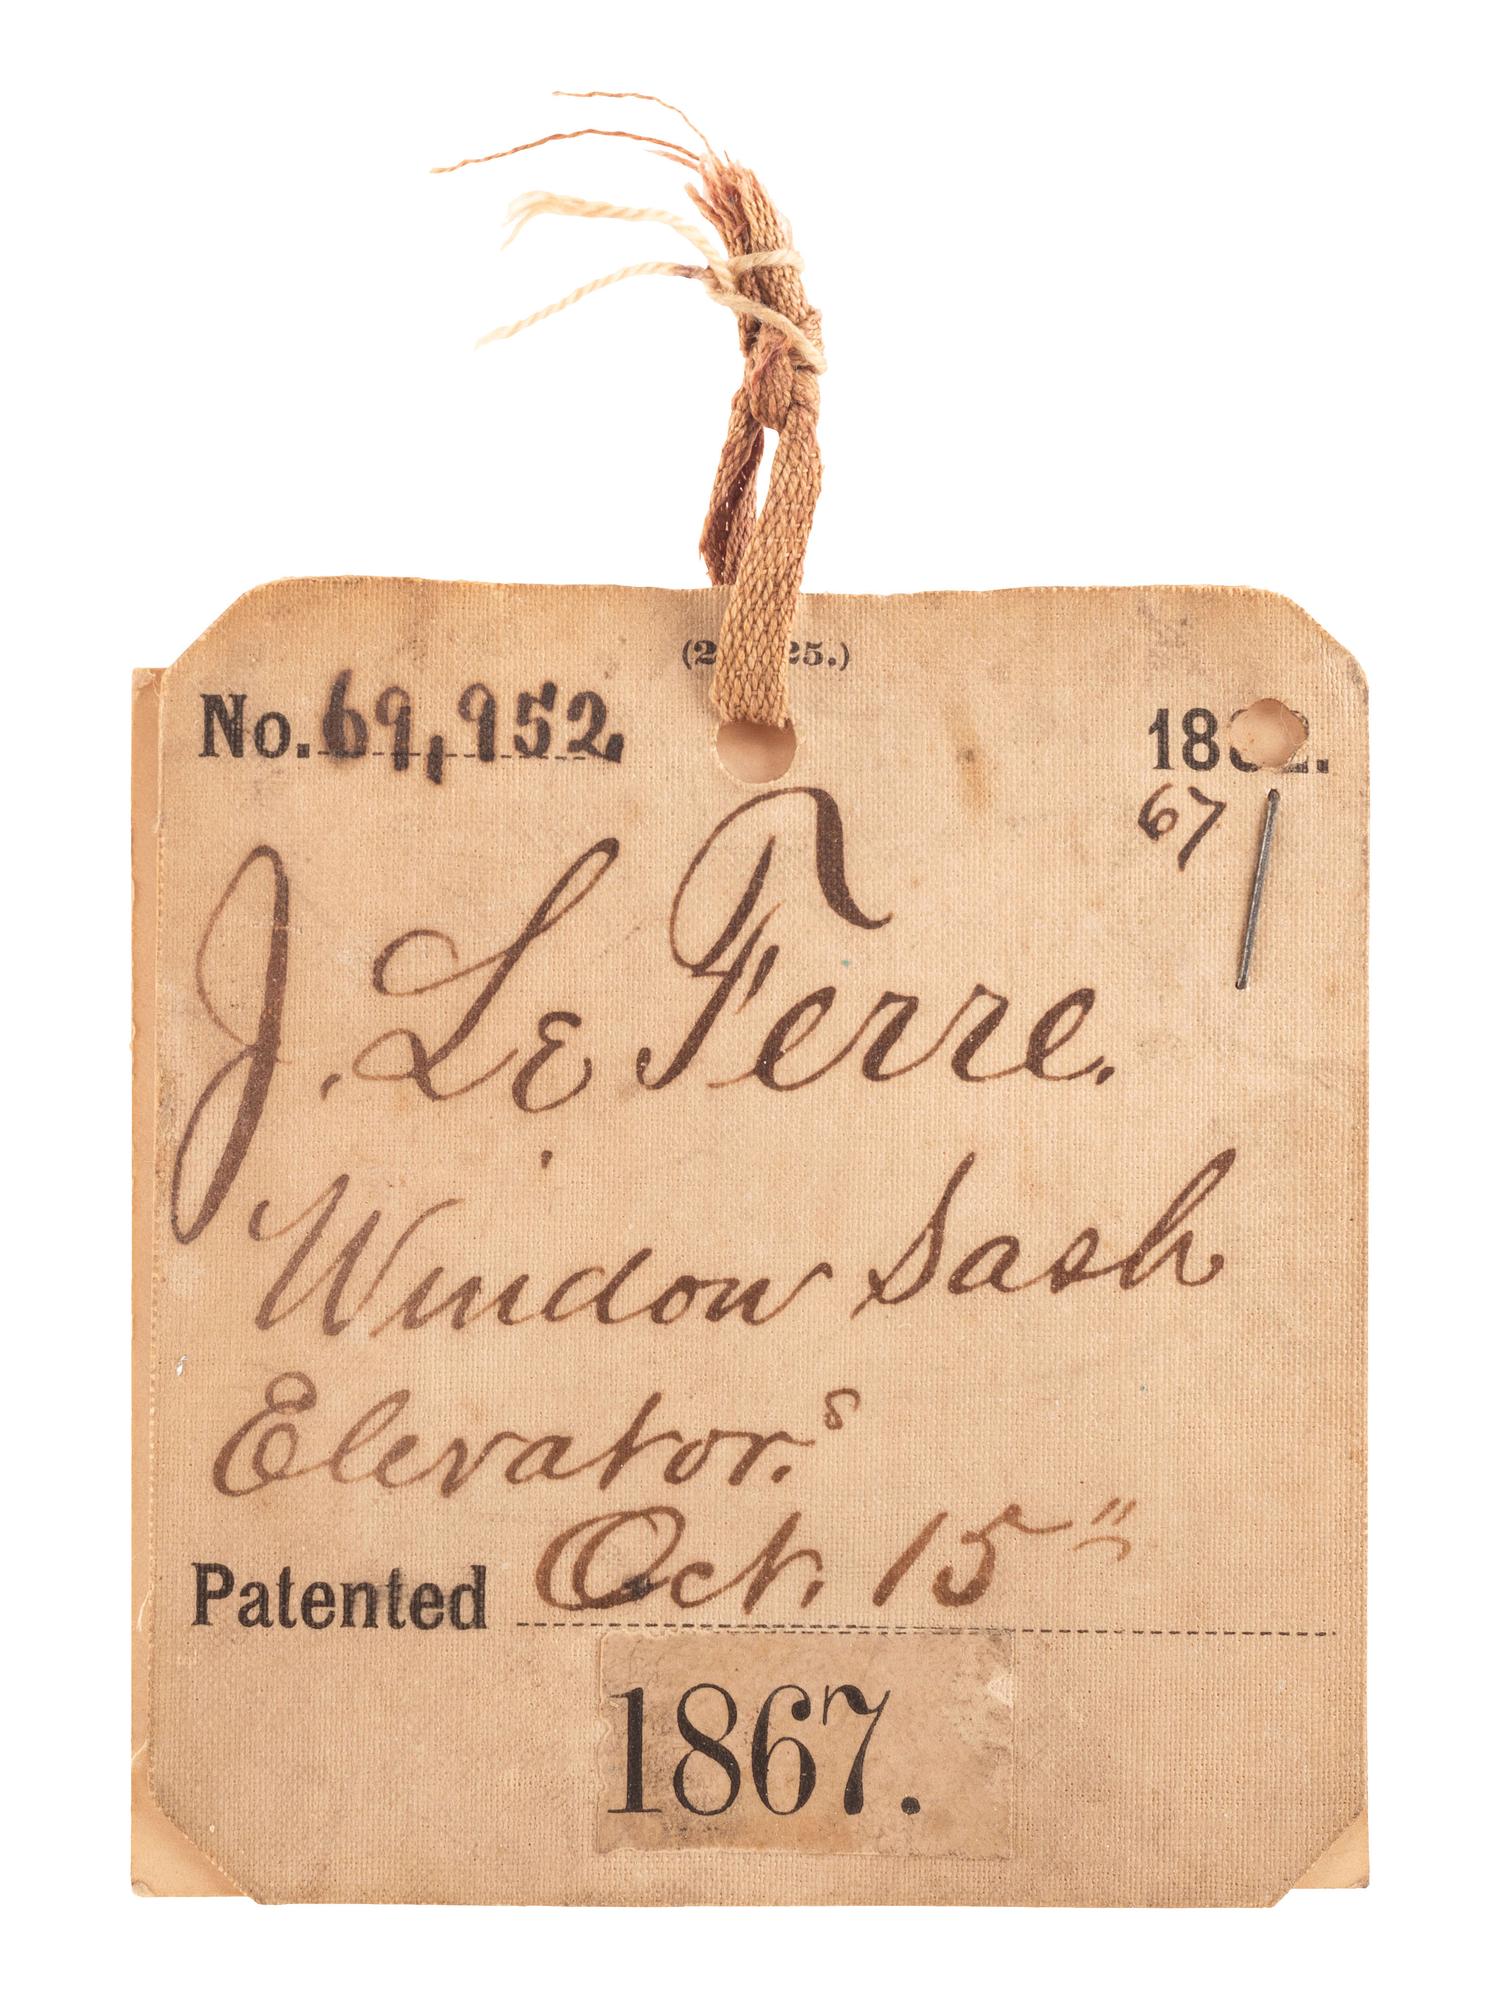 No. 69,952
67
J. Le Ferre.
Window Sash
Elevator.s
Patented Oct. 15"
1867.